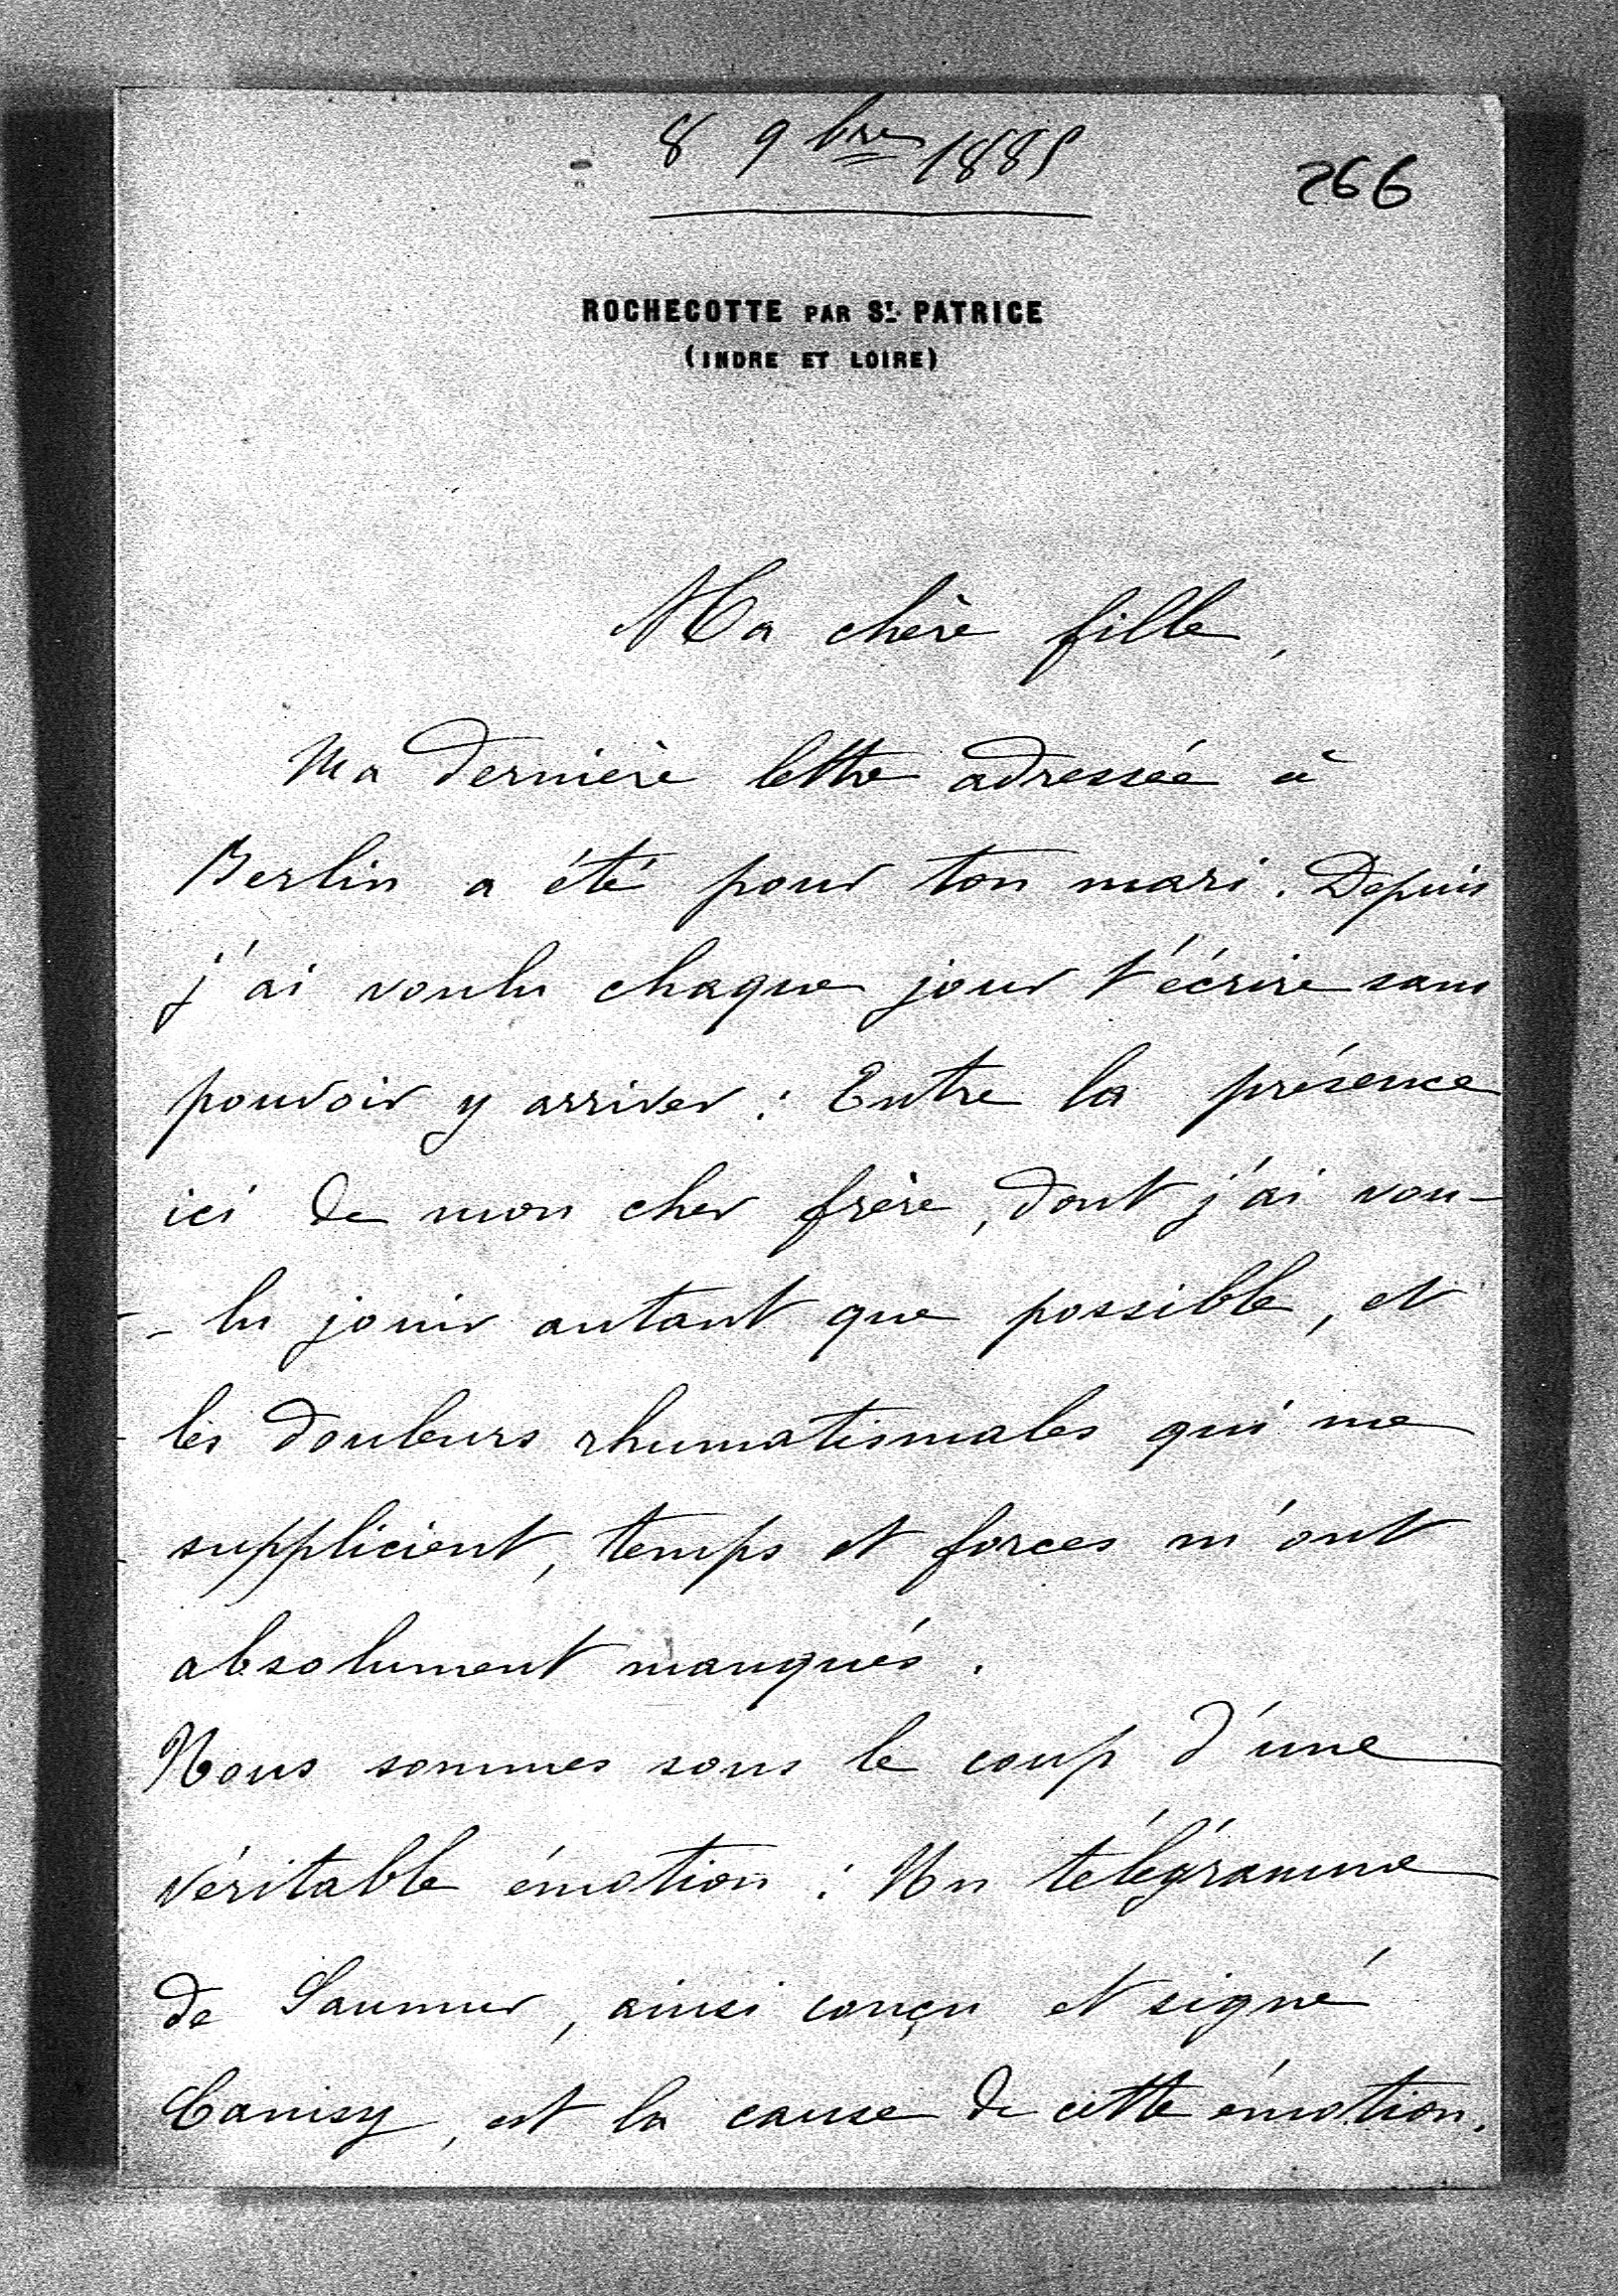 8 9bre 1885
266
ROCHECOTTE PAR St. PATRICE
(INDRE ET LOIRE)
Ma chère fille,
Ma dernière lettre adressée à
Berlin a été pour ton mari. Depuis
j'ai voulu chaque jour t'écrire sans
pouvoir y arriver : Entre la présence
ici de mon cher frère, dont j'ai vou-
- lu jouir autant que possible, et
les douleurs rhumatismales qui me
supplicient, temps et forces m'ont
absolument manqués.
Nous sommes sous le coup d'une
véritable émotion : Un télégramme
de Saumur, ainsi conçu et signé
Canisy, est la cause de cette émotion.